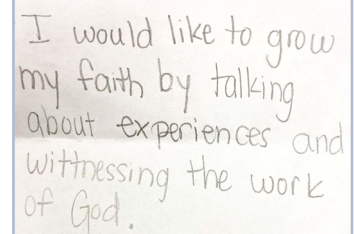 I would like to grow
my faith by talking
about experiences and
wittnessing the work
of God.